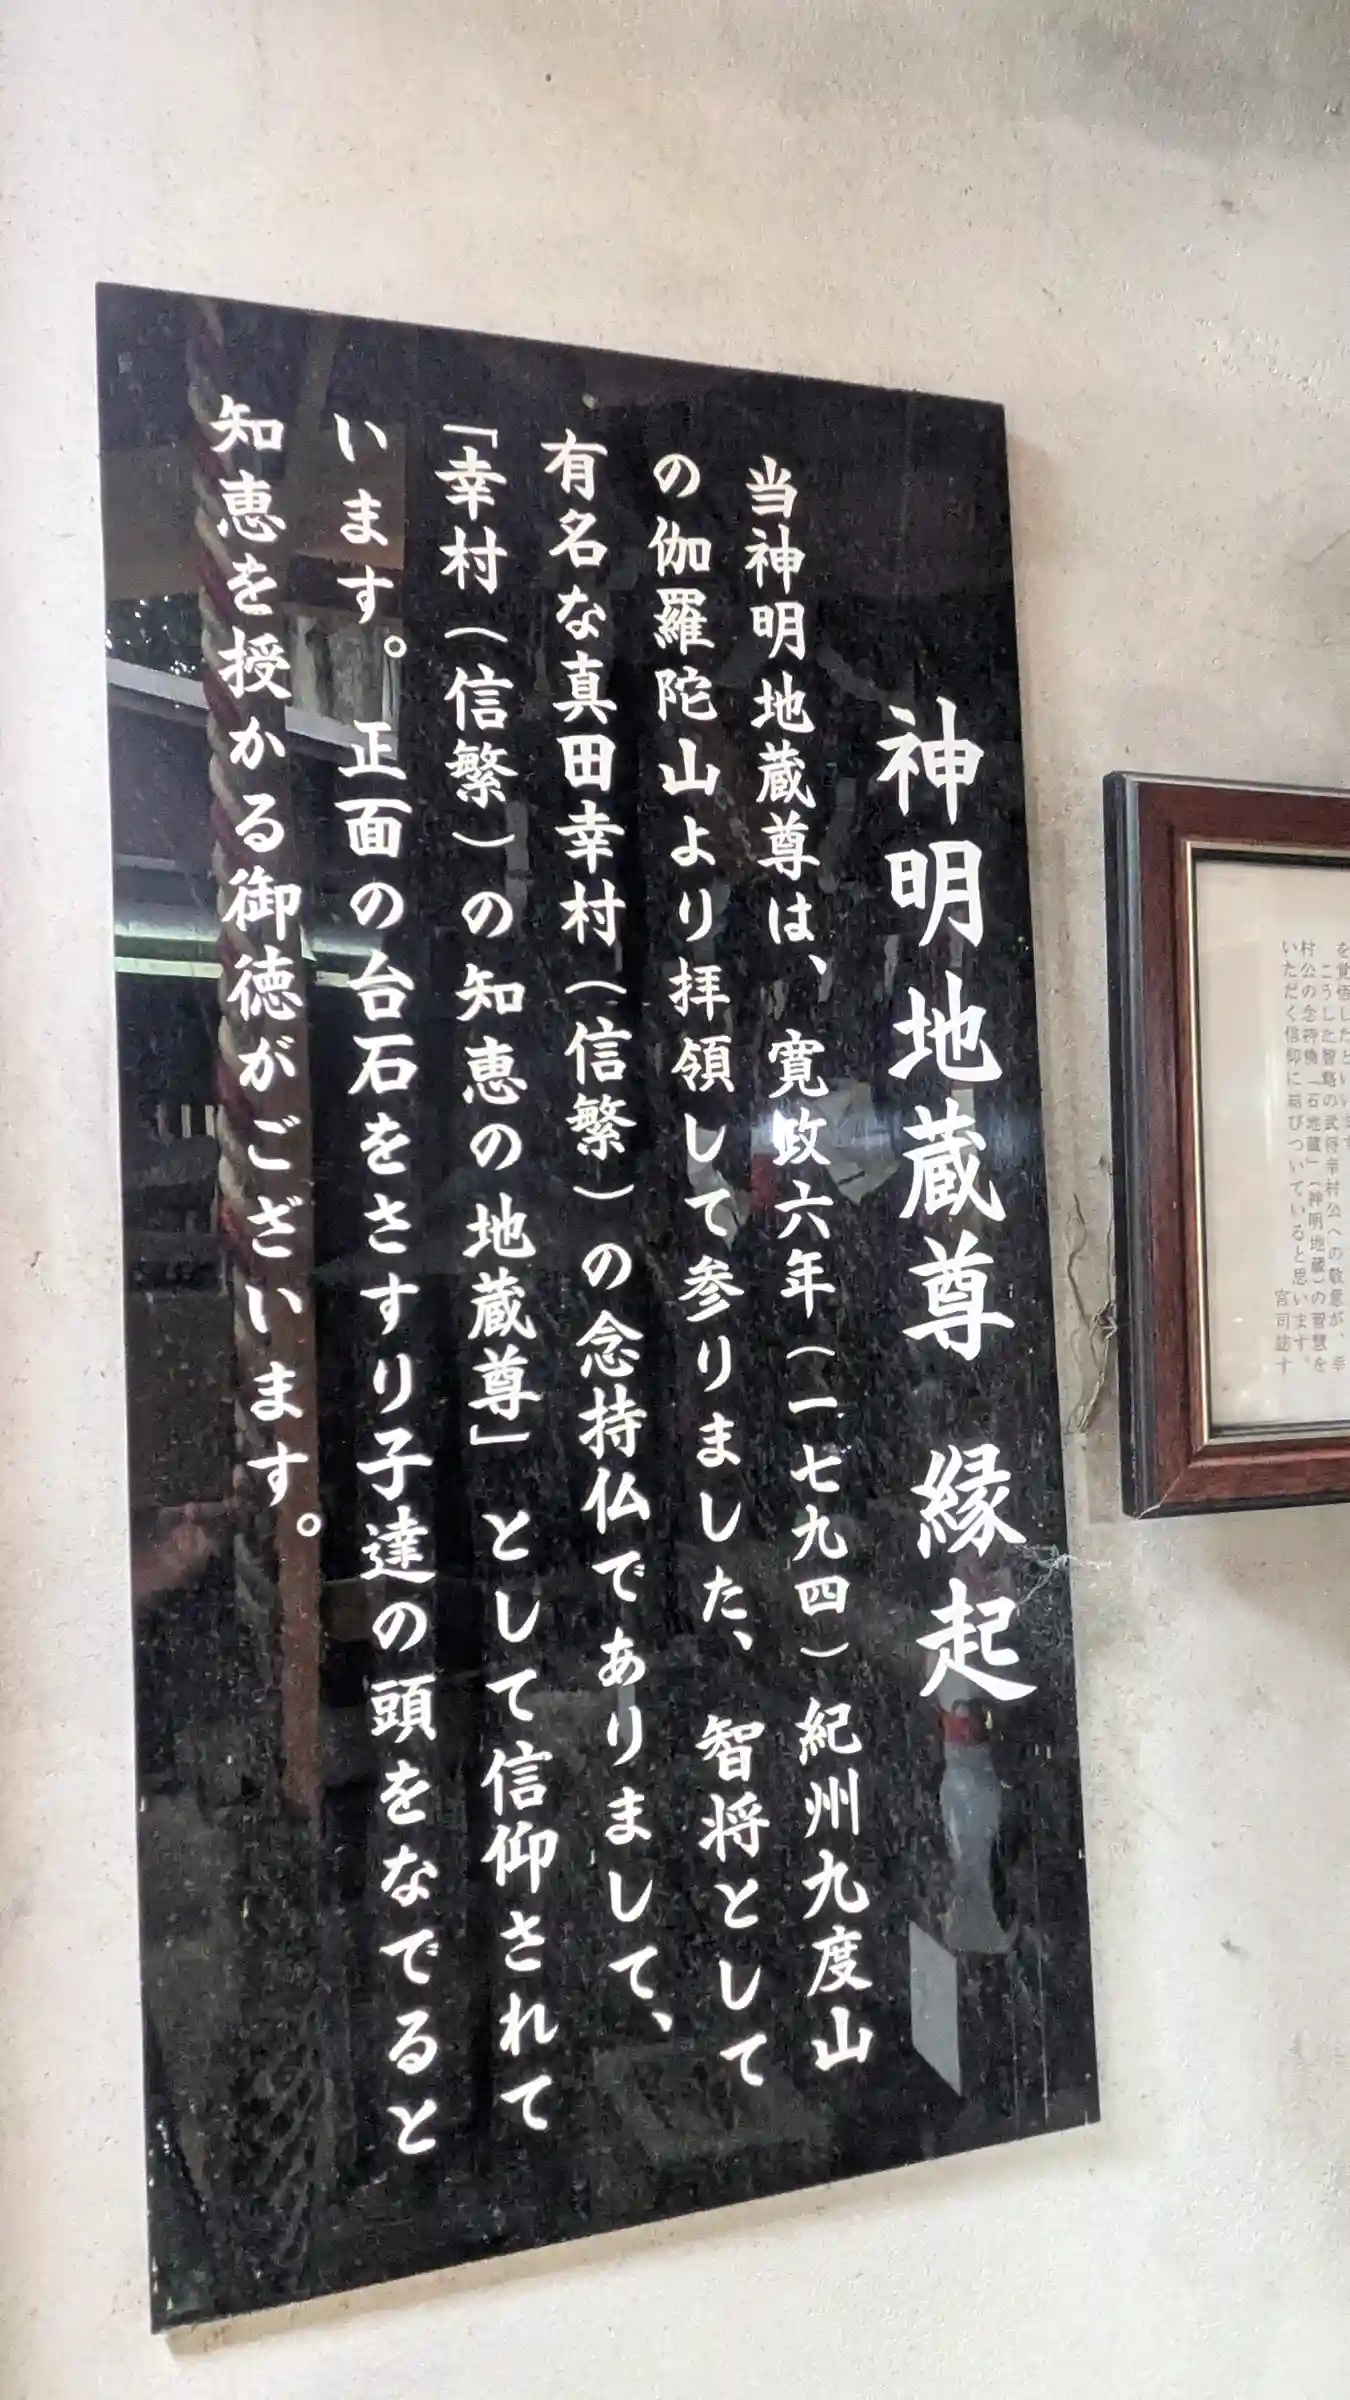 神明地蔵尊 縁起
当神明地蔵尊は、寛政六年（一七九四）紀州九度山
の伽羅陀山より拝領して参りました、智将として
有名な真田幸村（信繁）の念持仏でありまして、
「幸村（信繁）の知恵の地蔵尊」として信仰されて
います。正面の台石をさすり子達の頭をなでると
知恵を授かる御徳がございます。
こうした智略の武将幸村公への敬意が、幸
村公の念持佛「石地蔵」（神明地蔵）の智慧を
いただく信仰に結びついていると思います。
宮司誌す